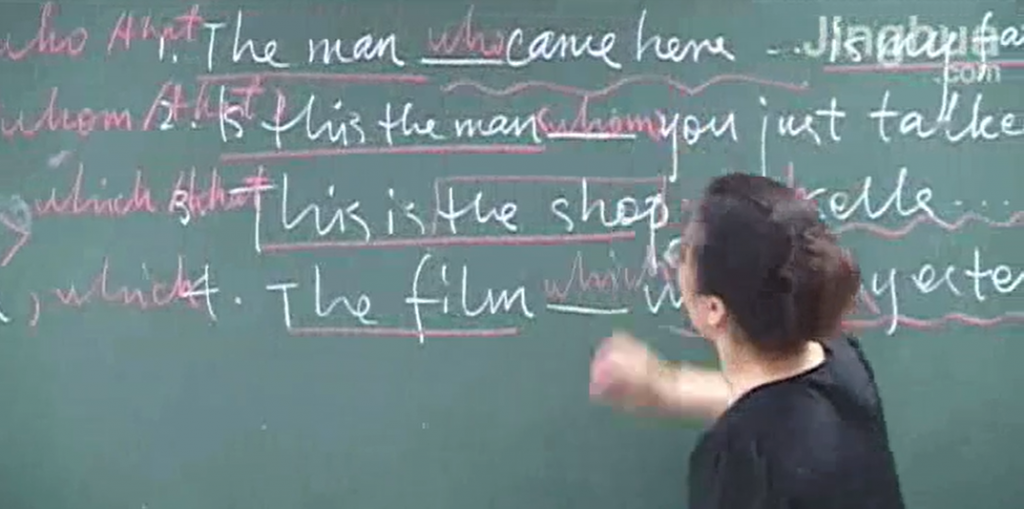 who that 1. The man who came here ... is my fa
whom / that 2. Is this the man whom you just talke
which that 3. This is the shop ... 
, which 4. The film which yeste
Jingbua
.com